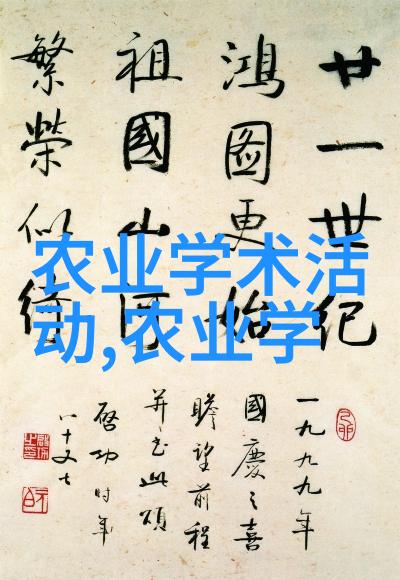 廿一世纪
鸿圖更始
祖國山河
繁榮似綺
一九九九年
國慶之喜
瞻望前程
并书此頌
啓功时年
八十又七
农业学术活
动,农业学